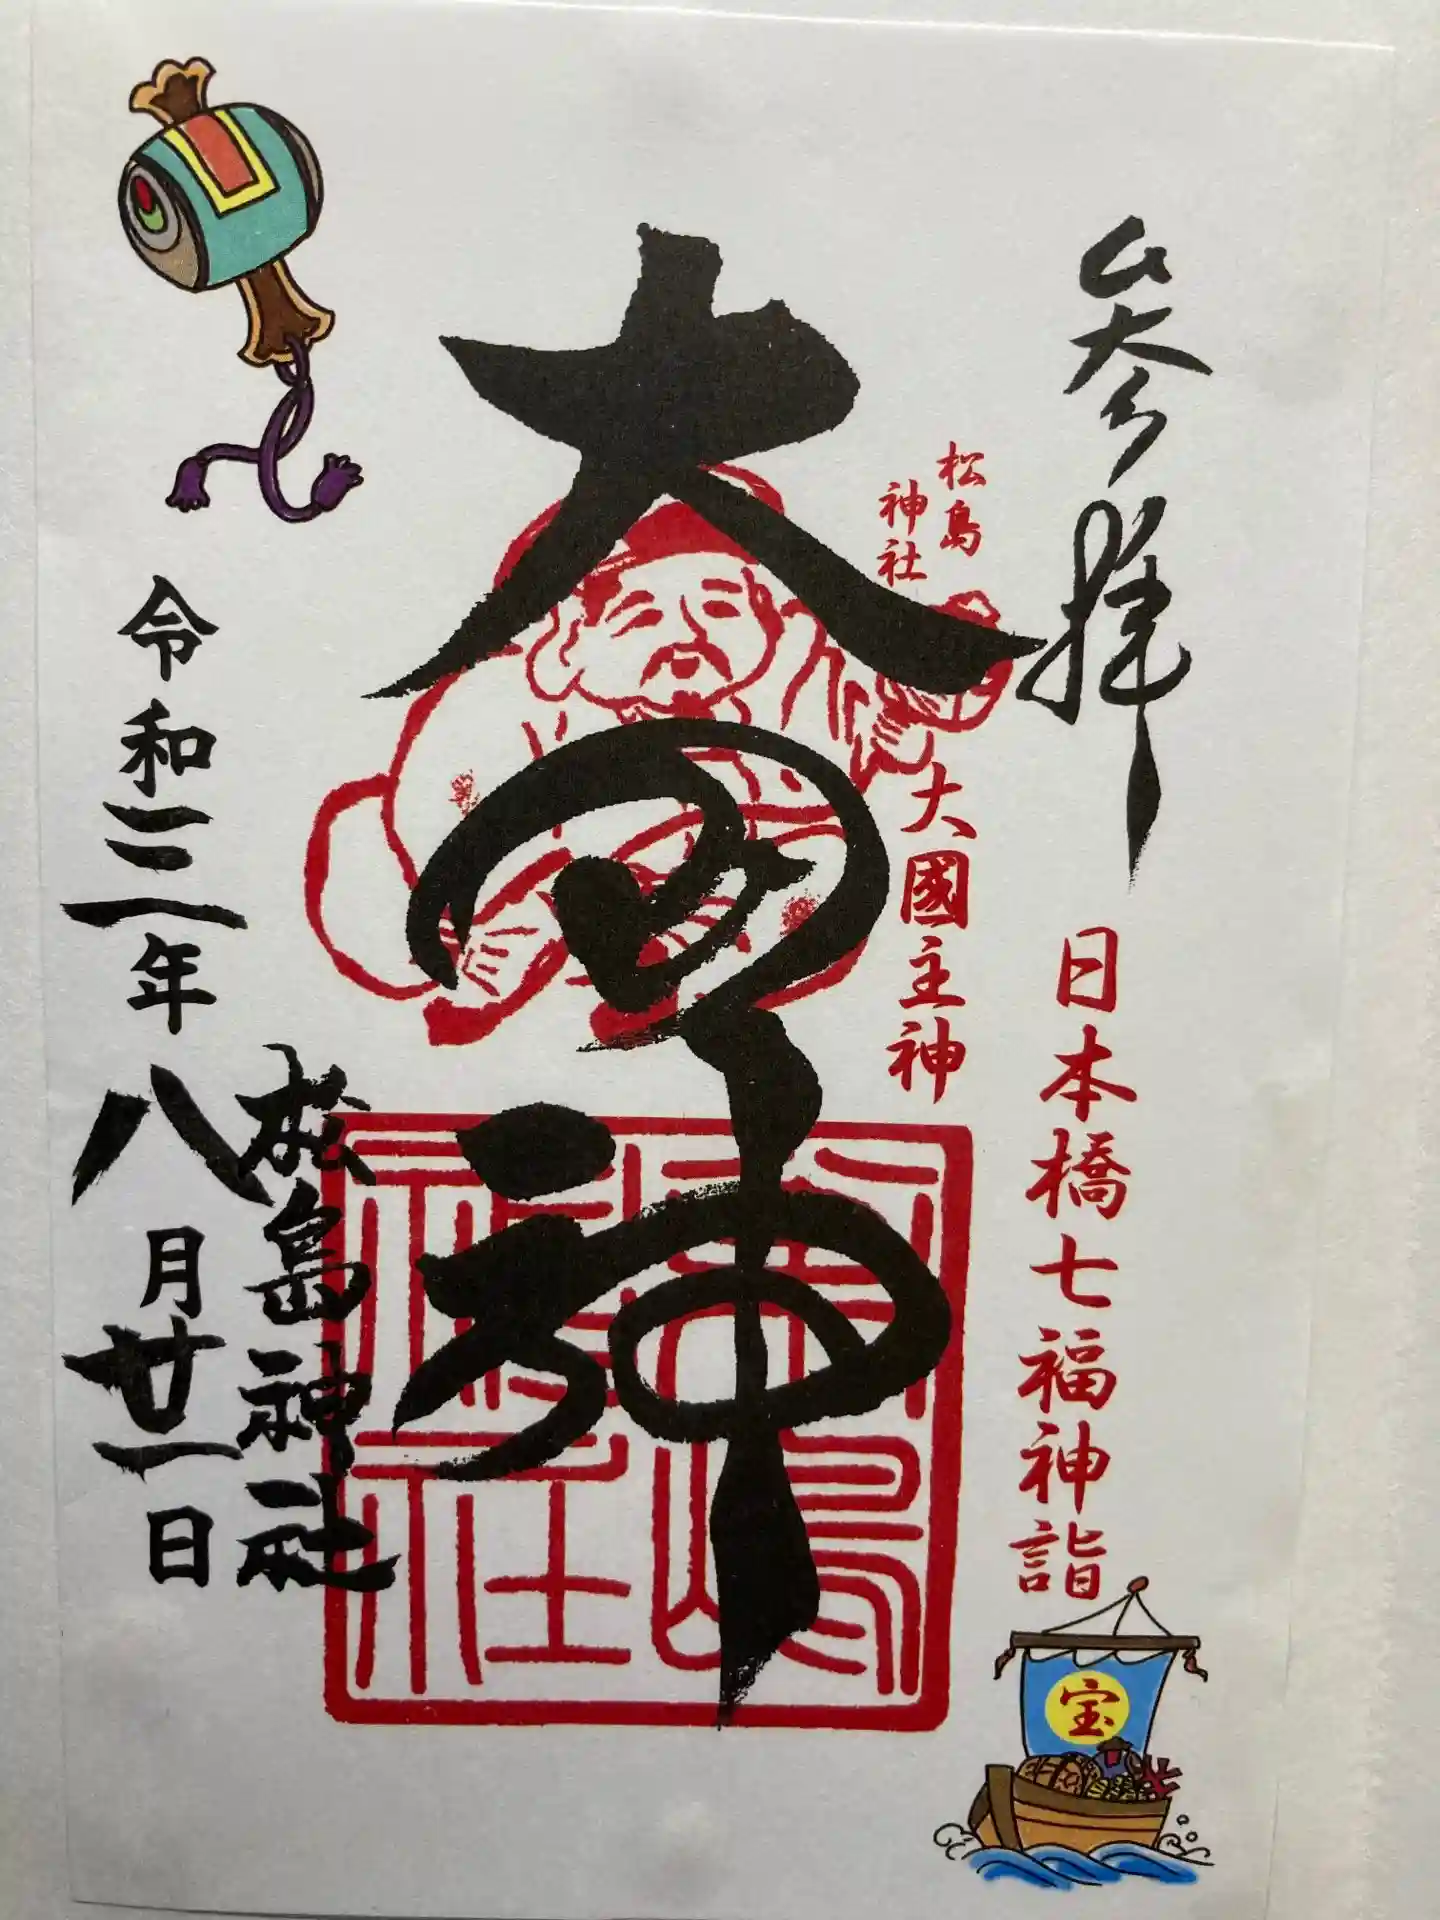 参拝
日本橋七福神詣
松島
神社
大國主神
大国神
松島神社
令和三年八月廿一日
宝